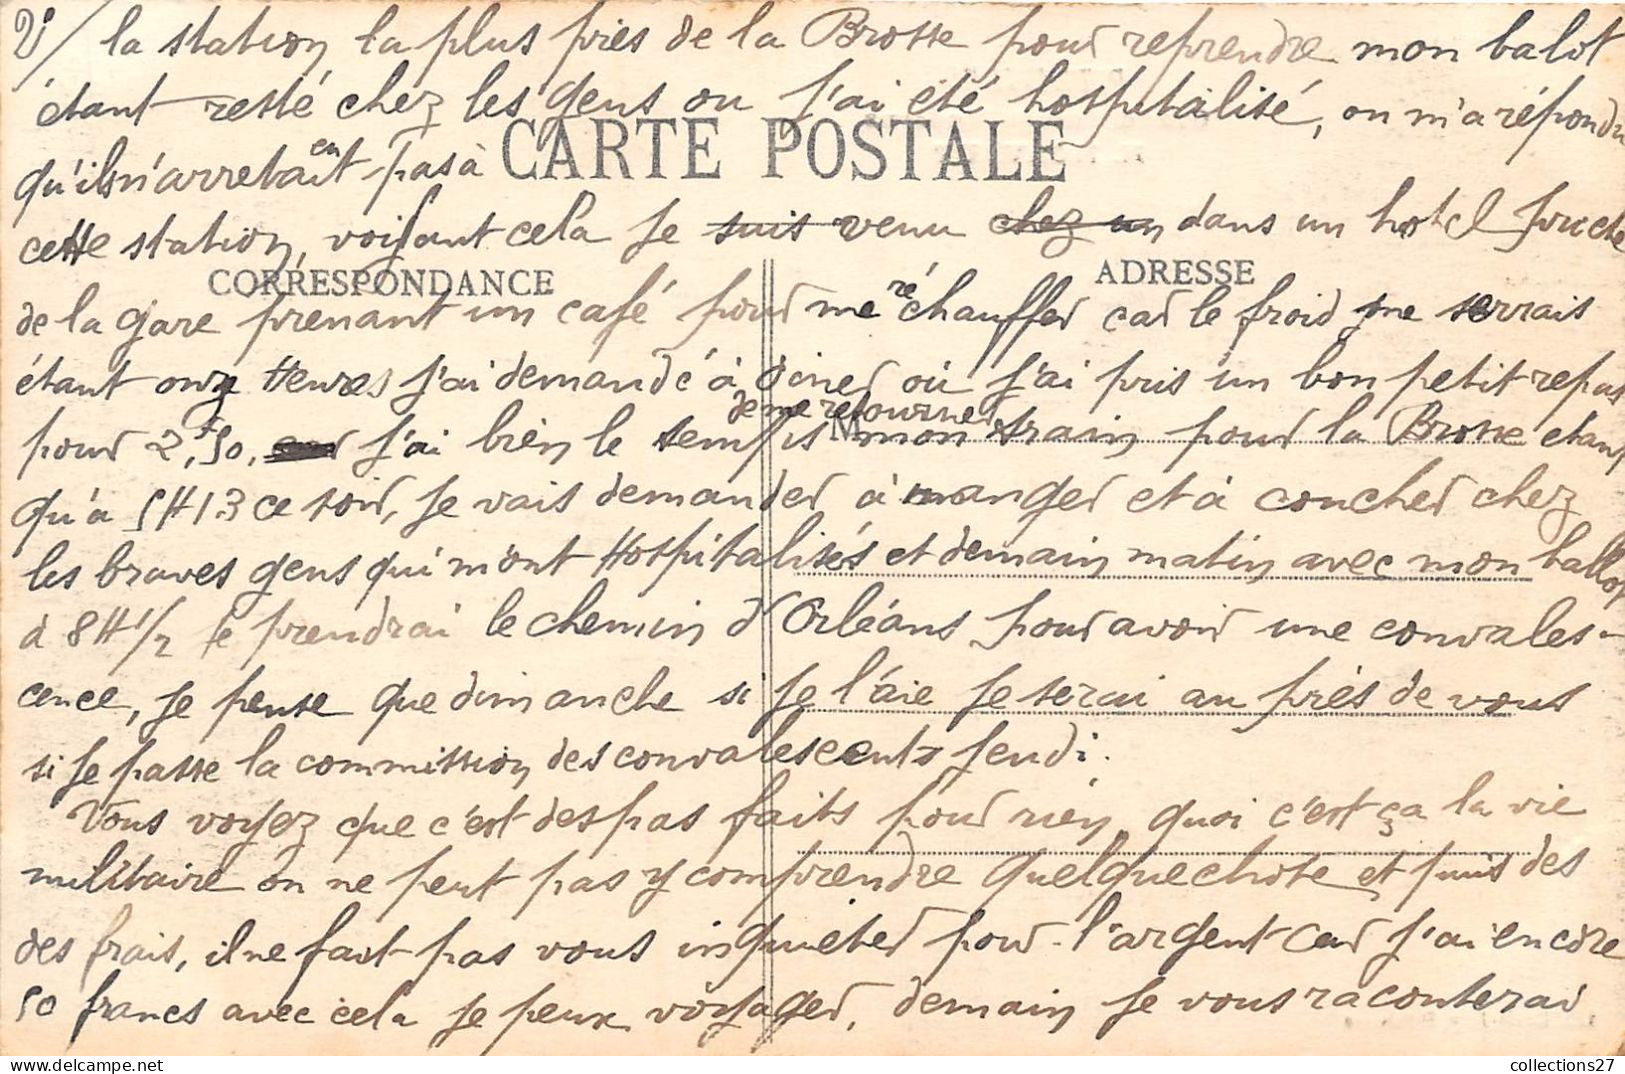 2/ la station la plus près de la Brosse pour reprendre mon balot
étant resté chez les gens ou j'ai été hospitalisé, on m'a répondu
qu'ils n'arretait en pas à
CARTE POSTALE
cette station, voiyant cela je suis venu chez un dans un hotel proche
CORRESPONDANCE
ADRESSE
de la gare prenant un café pour me réchauffer car le froid me serrais
étant onze Heures j'ai demandé à diner où j'ai pris un bon petit repas
pour 2f,50, j'ai bien le temps de me retourner mon train pour la Brosse etant
M
qu'à 5H13 ce soir, je vais demander à manger et à coucher chez
les braves gens qui m'ont Hospitalisés et demain matin avec mon ballot
à 8H1/2 je prendrai le chemin d'Orléans pour avoir une convales-
cence, je pense que dimanche si je l'aie je serai au près de vous
si je passe la commission des convalescents jeudi.
Vous voyez que c'est des pas faits pour rien, quoi c'est ça la vie
militaire on ne peut pas y comprendre quelque chose et puis des
des frais, il ne faut pas vous inquieter pour l'argent car j'ai encore
50 francs avec cela je peux voyager, demain je vous raconterai
collections27